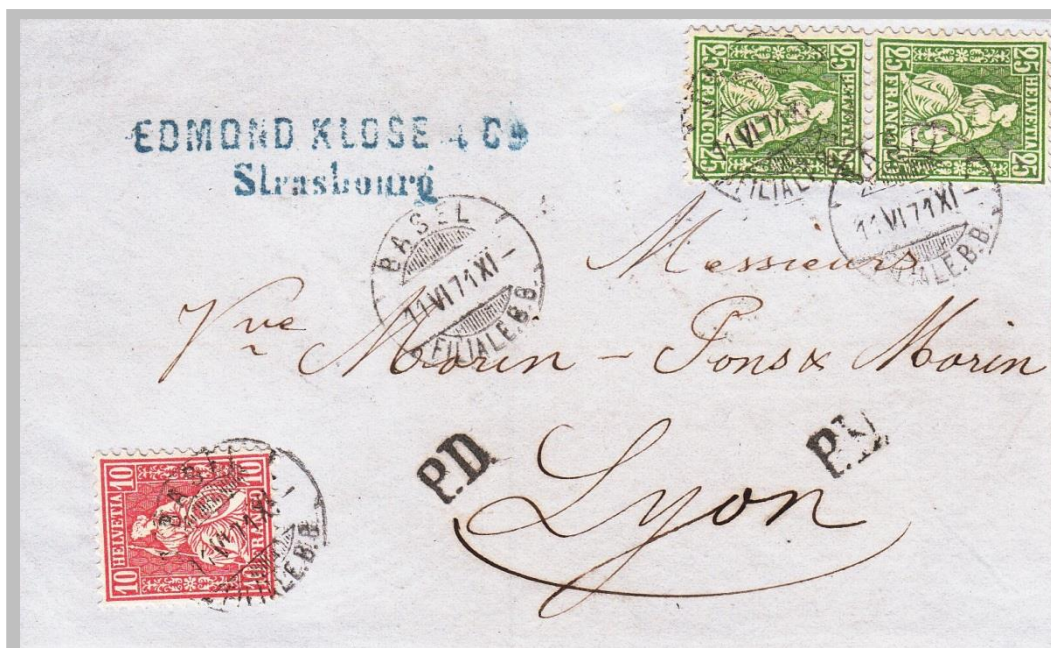 EDMOND KLOSE & Co
Strasbourg
25 HELVETIA 25
25 FRANCO 25
25 HELVETIA 25
25 FRANCO 25
BASEL
11 VI 71 XI
FILIALE.B.B.
11 VI 71 XI
FILIALE
11 VI 71 XI
ALE.B.B.
Messieurs
Vve Morin - Pons & Morin
Lyon
P.D.
P.D.
10 HELVETIA 10
10 FRANCO 10
BASEL
11 VI 71 XI
FILIALE.B.B.